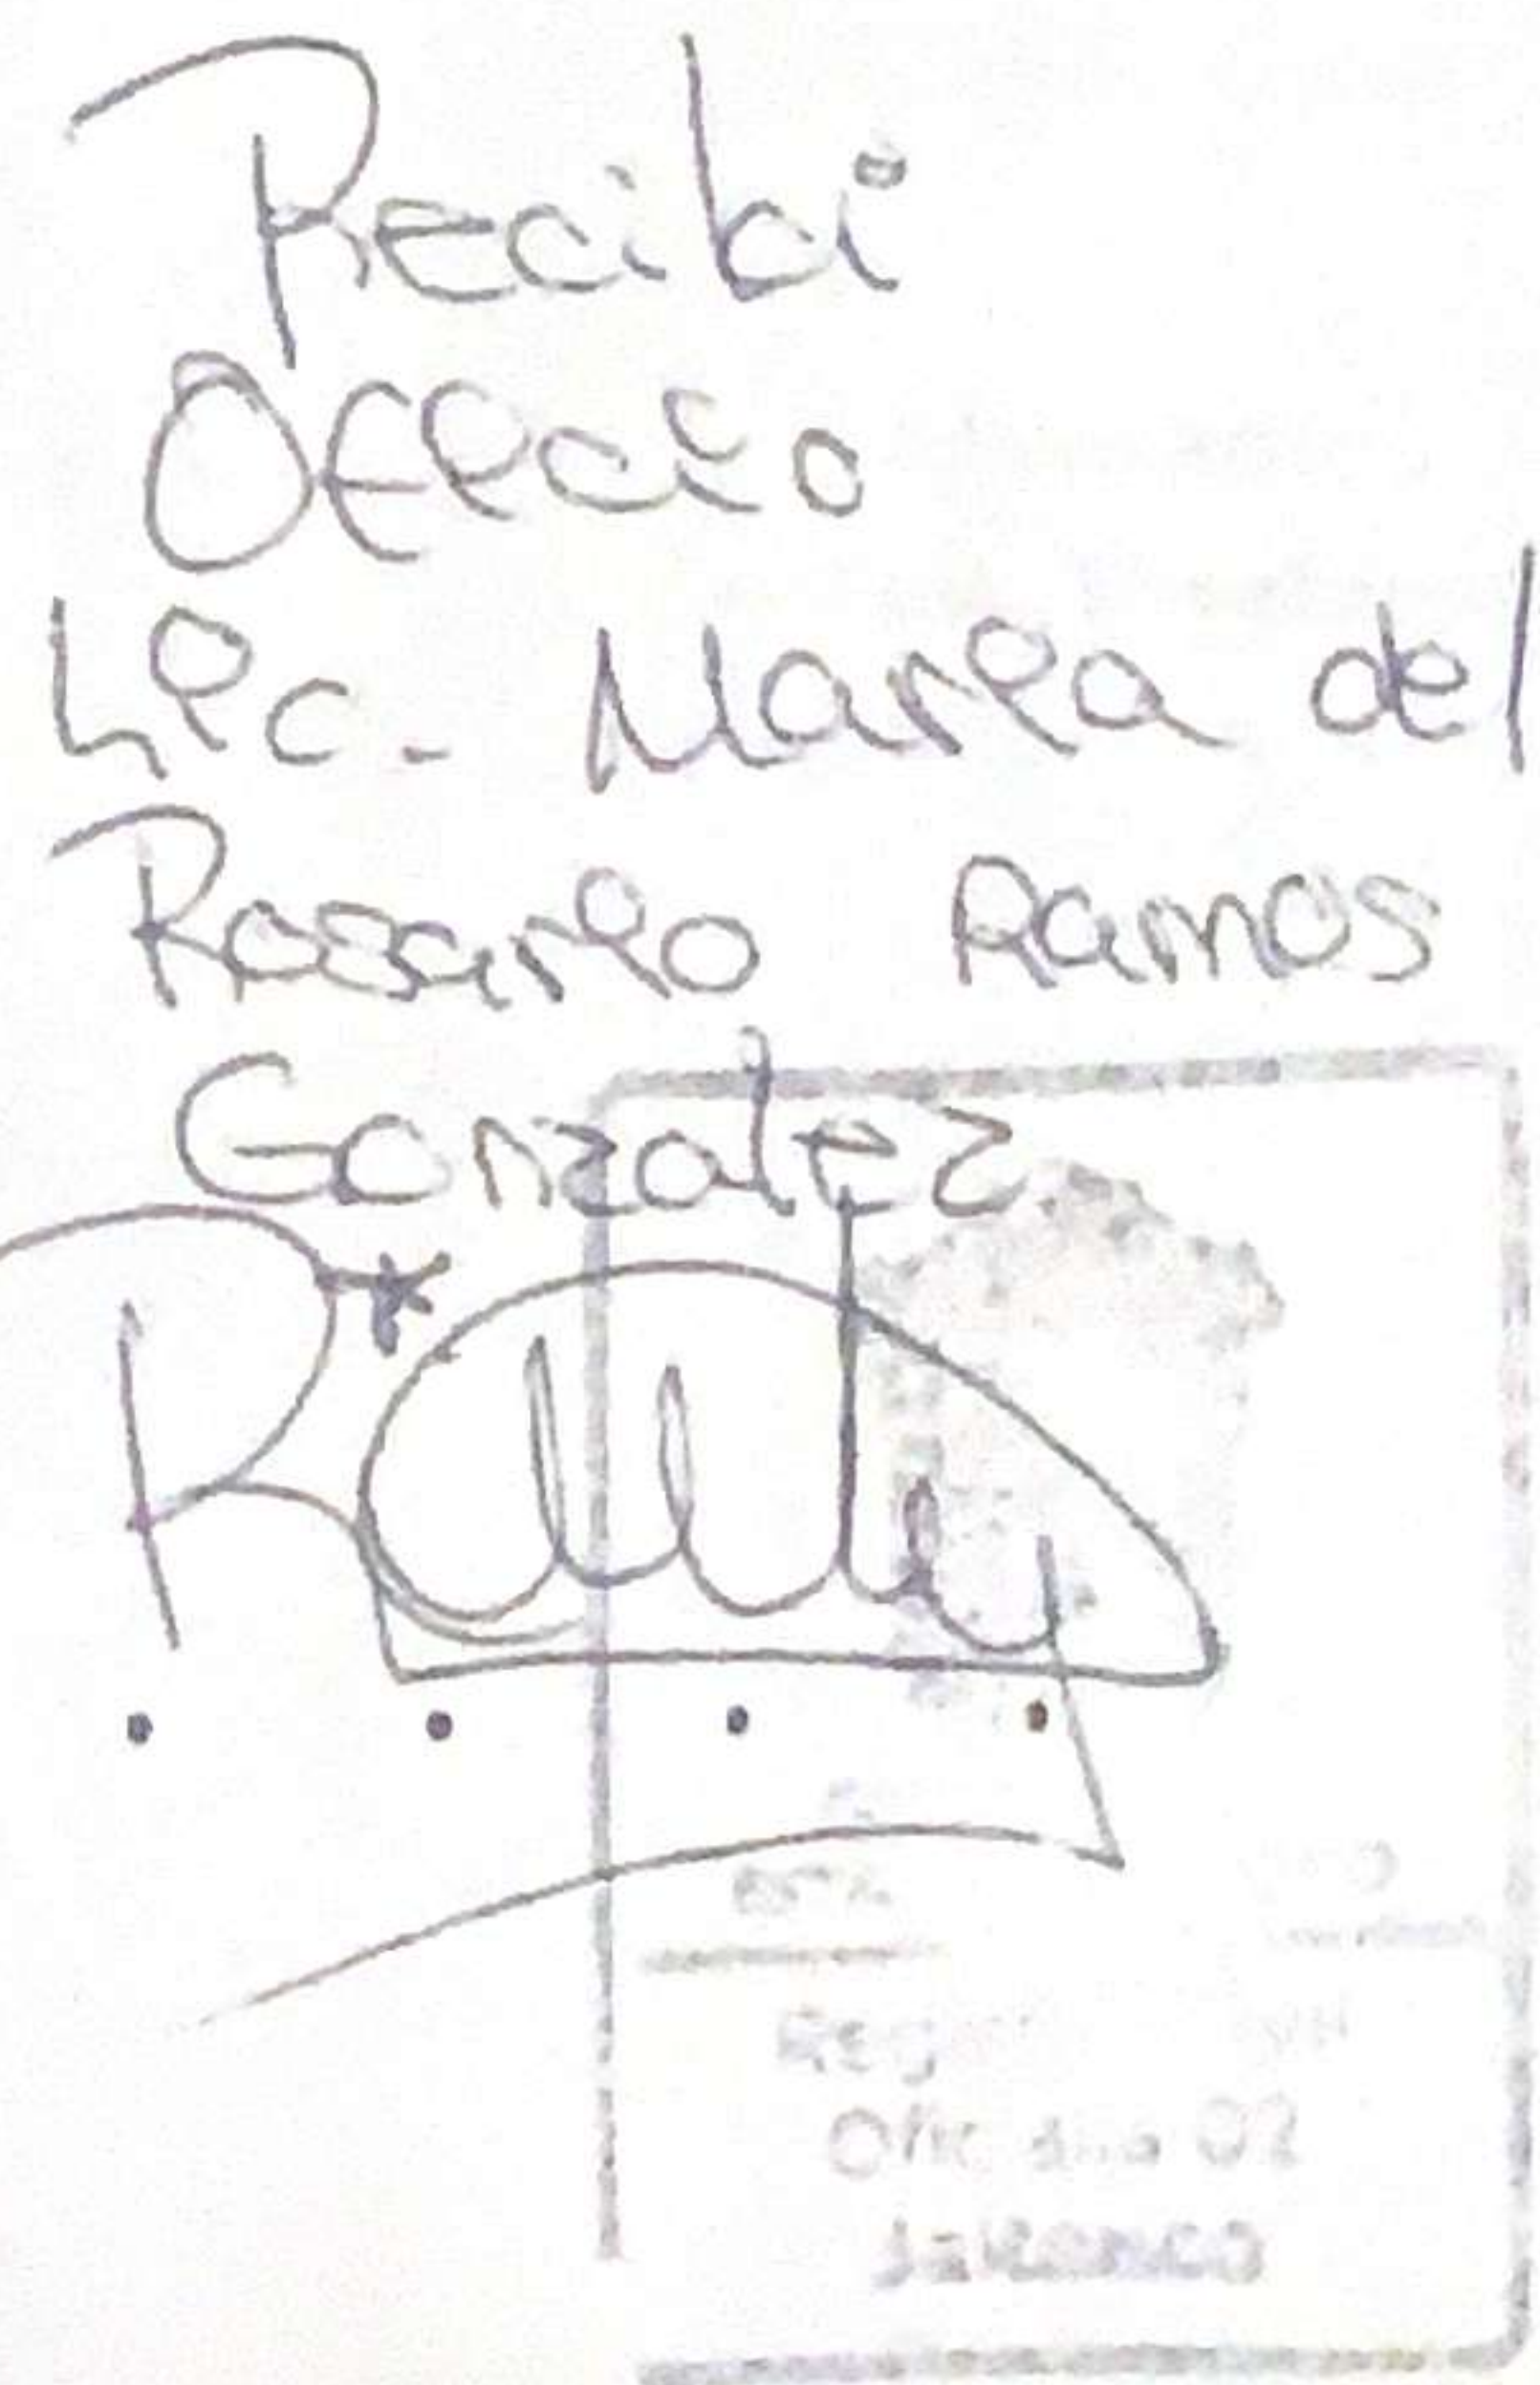 Recibi
Oficio
Lic. Maria del
Rosario Ramos
Gonzalez
02